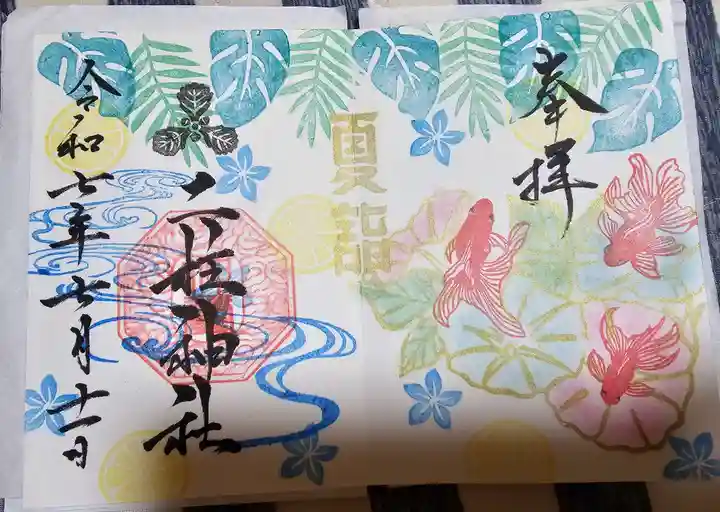 奉拝
夏詣
二柱神社
令和七年七月十一日